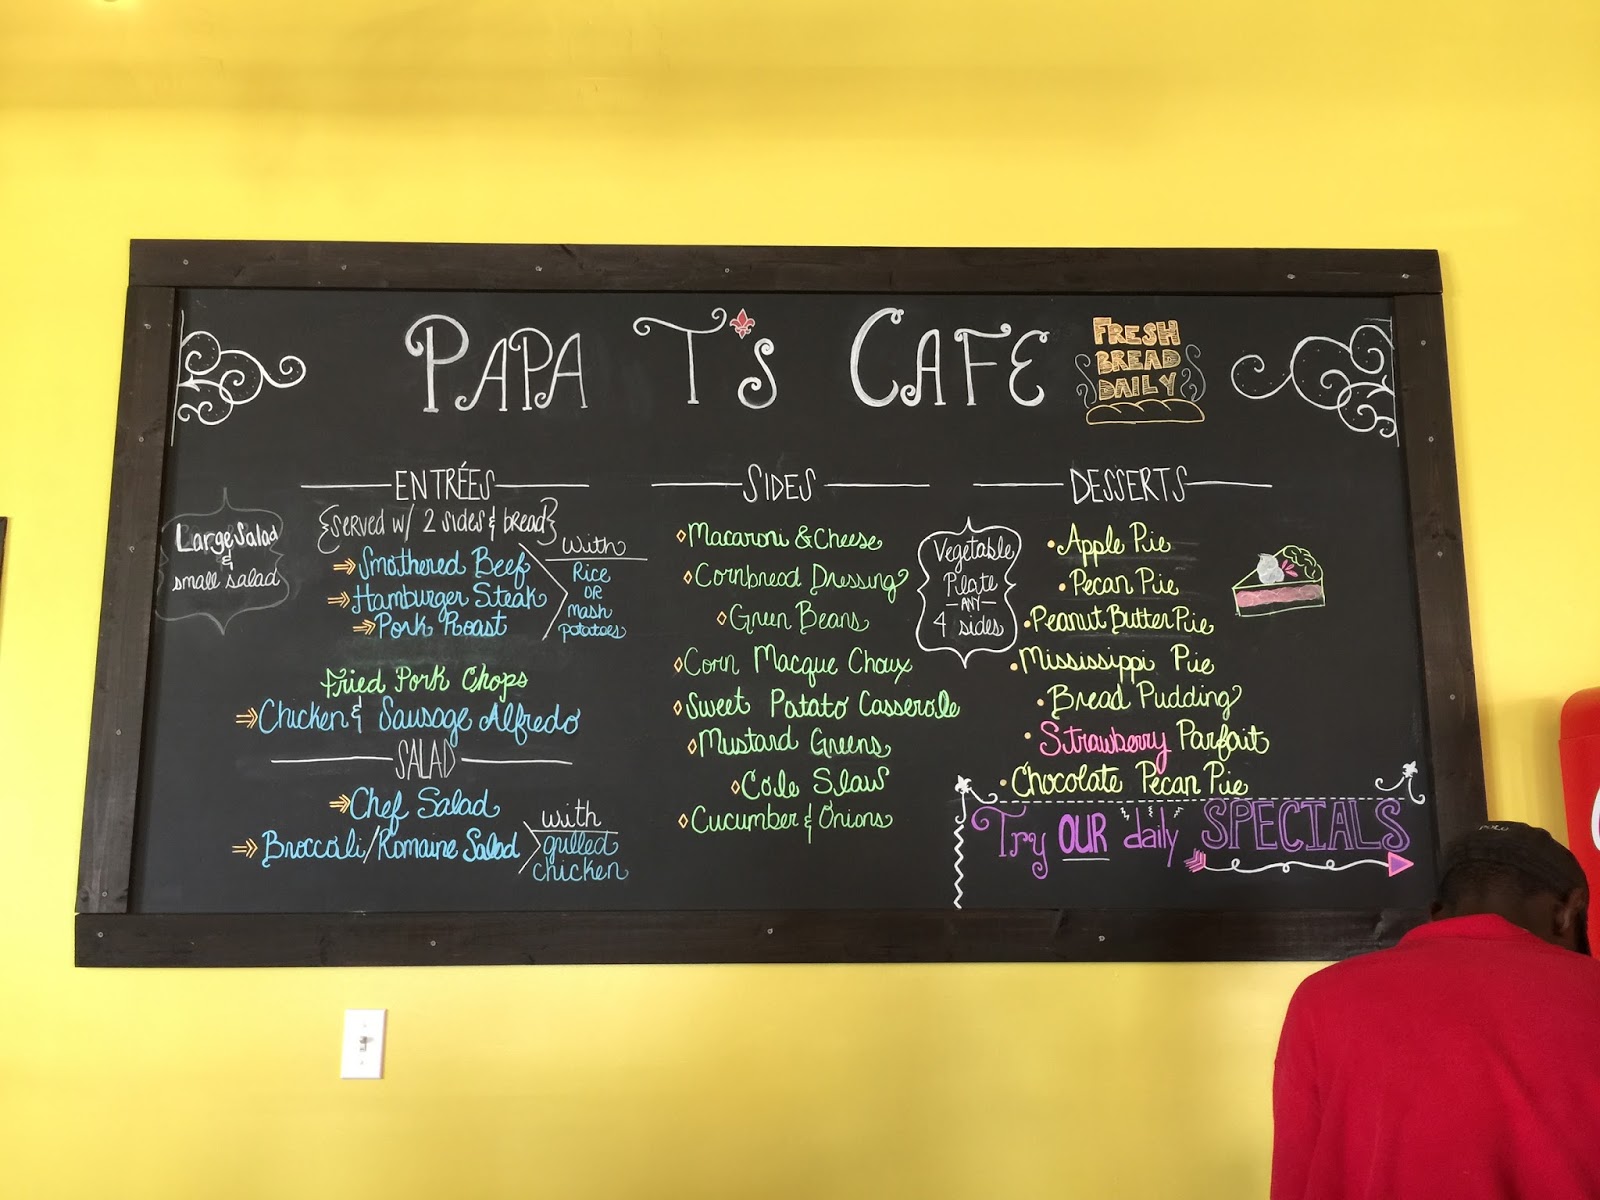 PAPA T's CAFE
FRESH
BREAD
DAILY
ENTRÉES
{served w/ 2 sides & bread}
Large Salad
&
small salad
Smothered Beef
Hamburger Steak
Pork Roast
With
Rice
OR
mash
potatoes
Fried Pork Chops
Chicken & Sausage Alfredo
SALAD
Chef Salad
Broccoli/Romaine Salad
with
grilled
chicken
SIDES
Macaroni & Cheese
Cornbread Dressing
Green Beans
Corn Macque Choux
Sweet Potato Casserole
Mustard Greens
Cole Slaw
Cucumber & Onions
Vegetable
Plate
ANY
4 sides
DESSERTS
Apple Pie
Pecan Pie
Peanut Butter Pie
Mississippi Pie
Bread Pudding
Strawberry Parfait
Chocolate Pecan Pie
Try OUR daily SPECIALS